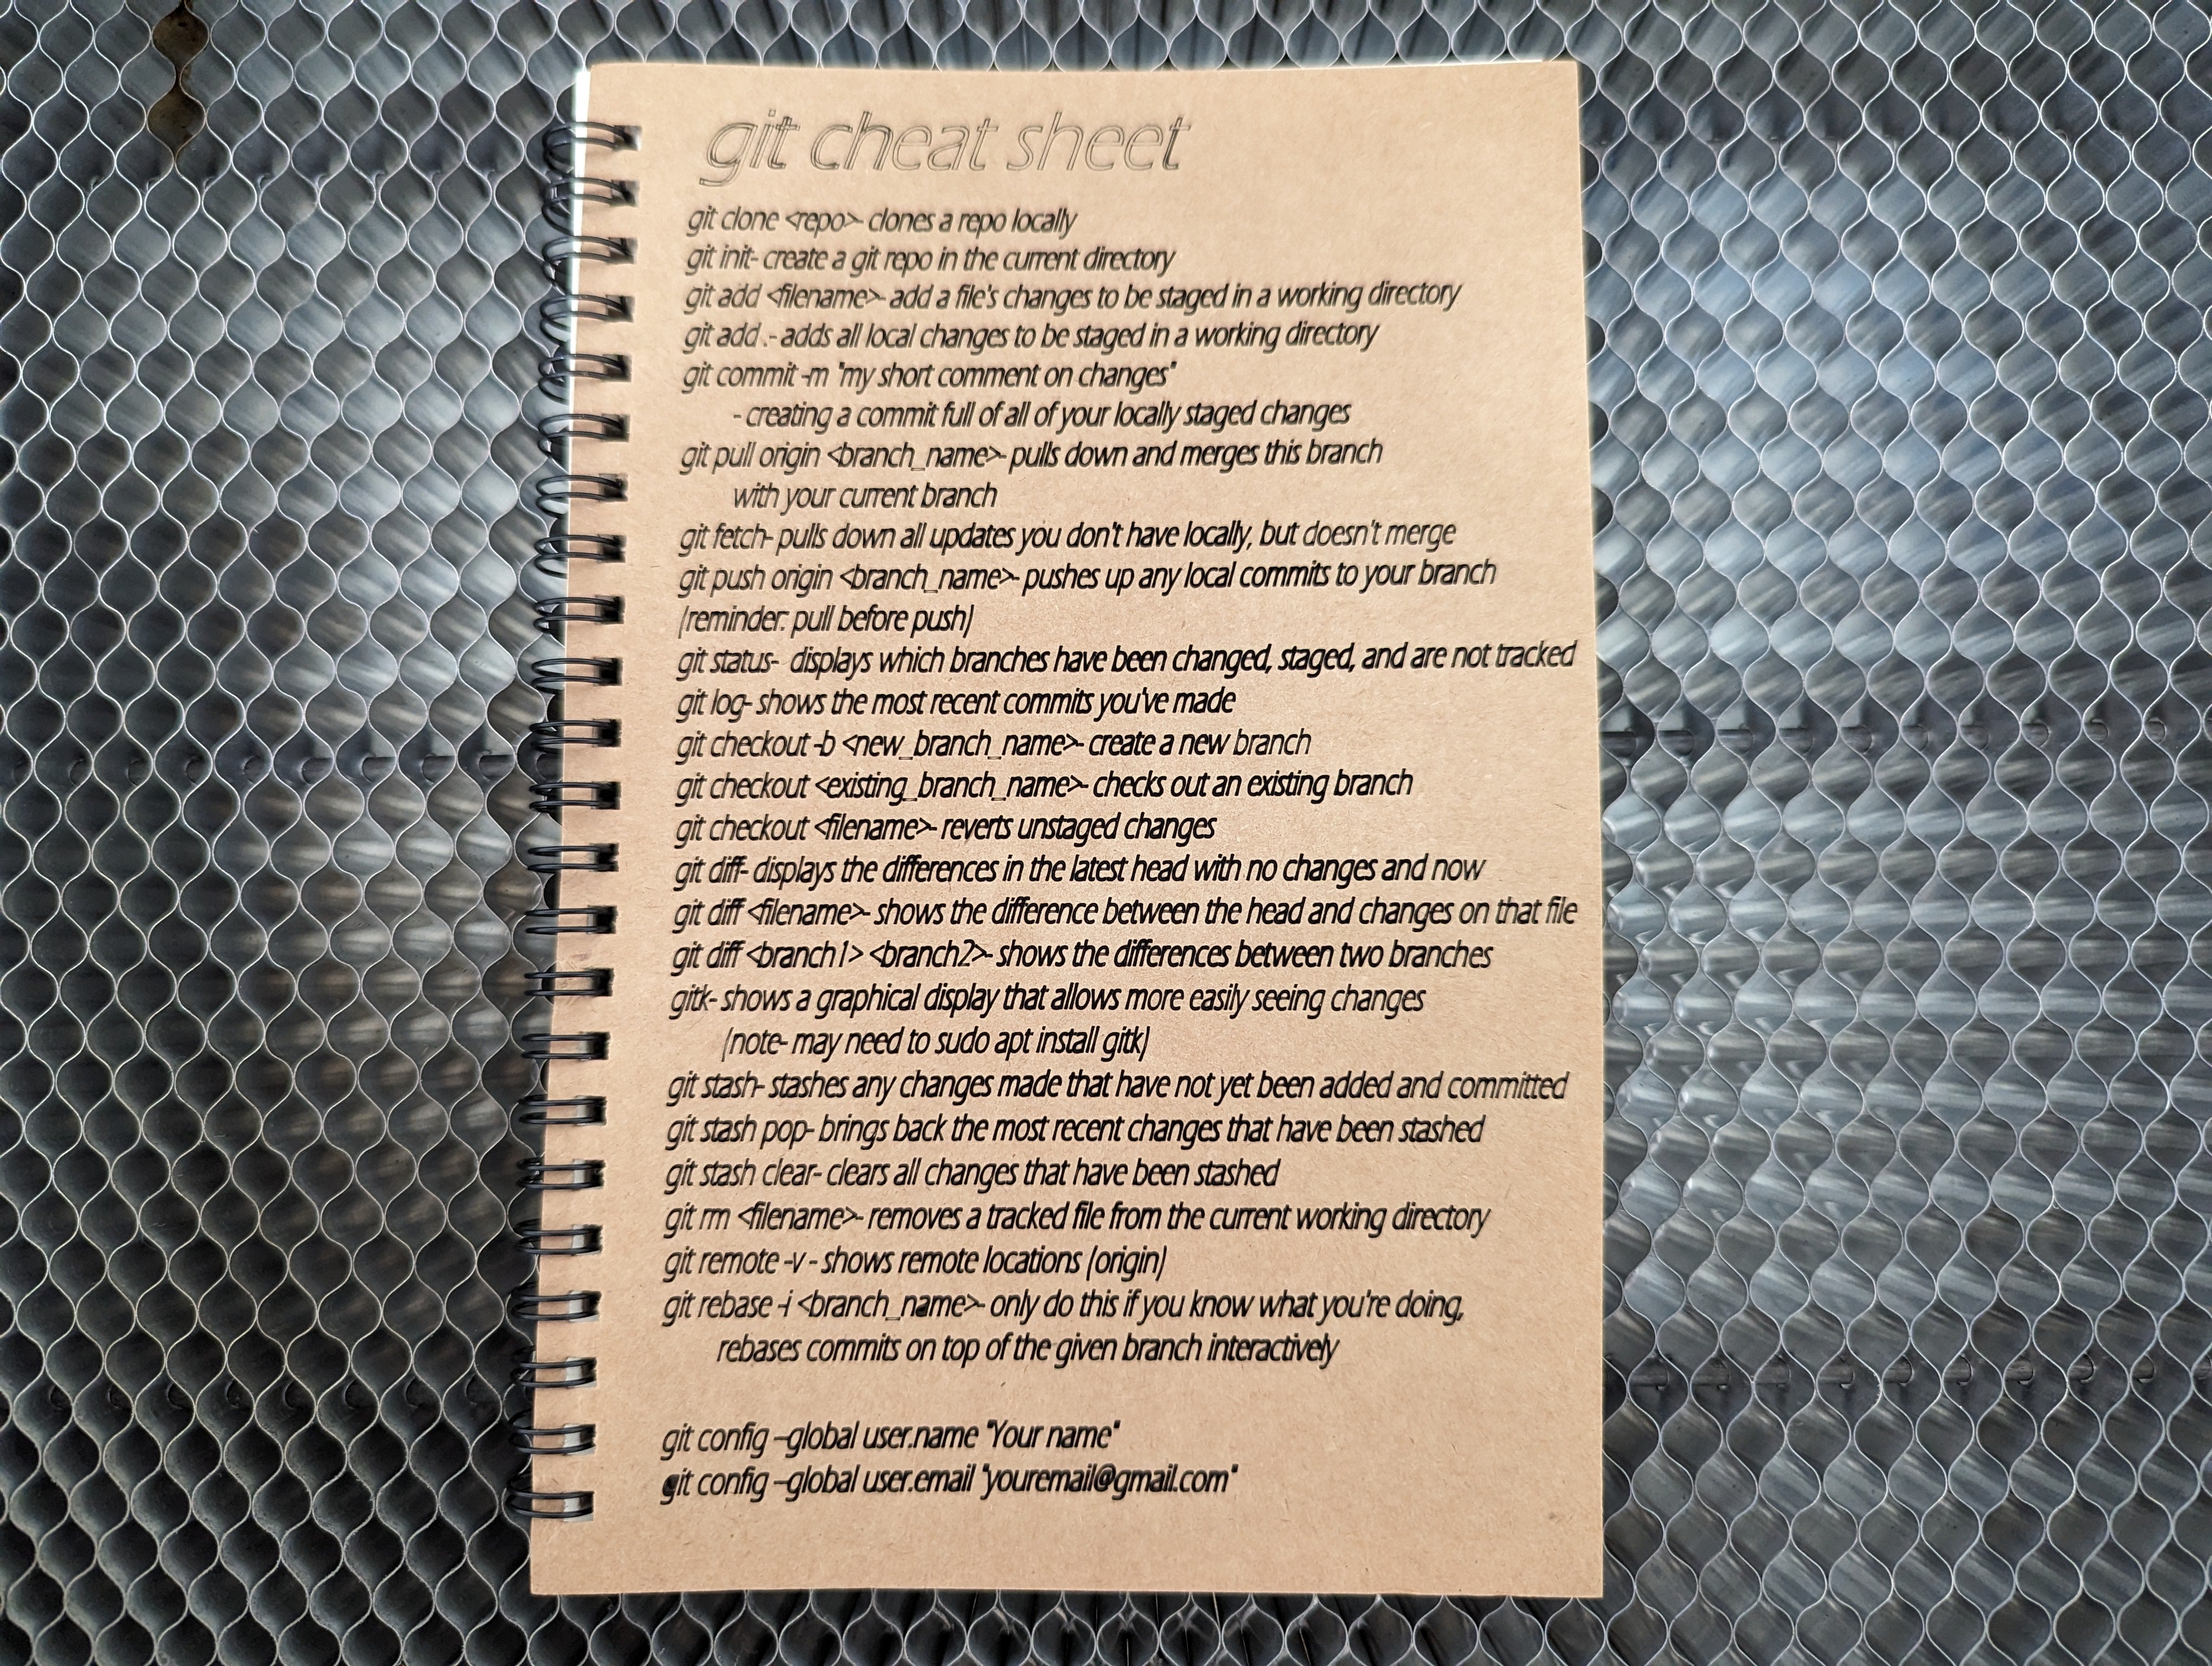 git cheat sheet
git clone <repo>- clones a repo locally
git init- create a git repo in the current directory
git add <filename>- add a file's changes to be staged in a working directory
git add .- adds all local changes to be staged in a working directory
git commit -m "my short comment on changes"
- creating a commit full of all of your locally staged changes
git pull origin <branch_name>- pulls down and merges this branch
with your current branch
git fetch- pulls down all updates you don't have locally, but doesn't merge
git push origin <branch_name>- pushes up any local commits to your branch
(reminder: pull before push)
git status- displays which branches have been changed, staged, and are not tracked
git log- shows the most recent commits you've made
git checkout -b <new_branch_name>- create a new branch
git checkout <existing_branch_name>- checks out an existing branch
git checkout <filename>- reverts unstaged changes
git diff- displays the differences in the latest head with no changes and now
git diff <filename>- shows the difference between the head and changes on that file
git diff <branch1> <branch2>- shows the differences between two branches
gitk- shows a graphical display that allows more easily seeing changes
(note- may need to sudo apt install gitk)
git stash- stashes any changes made that have not yet been added and committed
git stash pop- brings back the most recent changes that have been stashed
git stash clear- clears all changes that have been stashed
git rm <filename>- removes a tracked file from the current working directory
git remote -v - shows remote locations (origin)
git rebase -i <branch_name>- only do this if you know what you're doing,
rebases commits on top of the given branch interactively
git config –global user.name "Your name"
git config –global user.email "youremail@gmail.com"